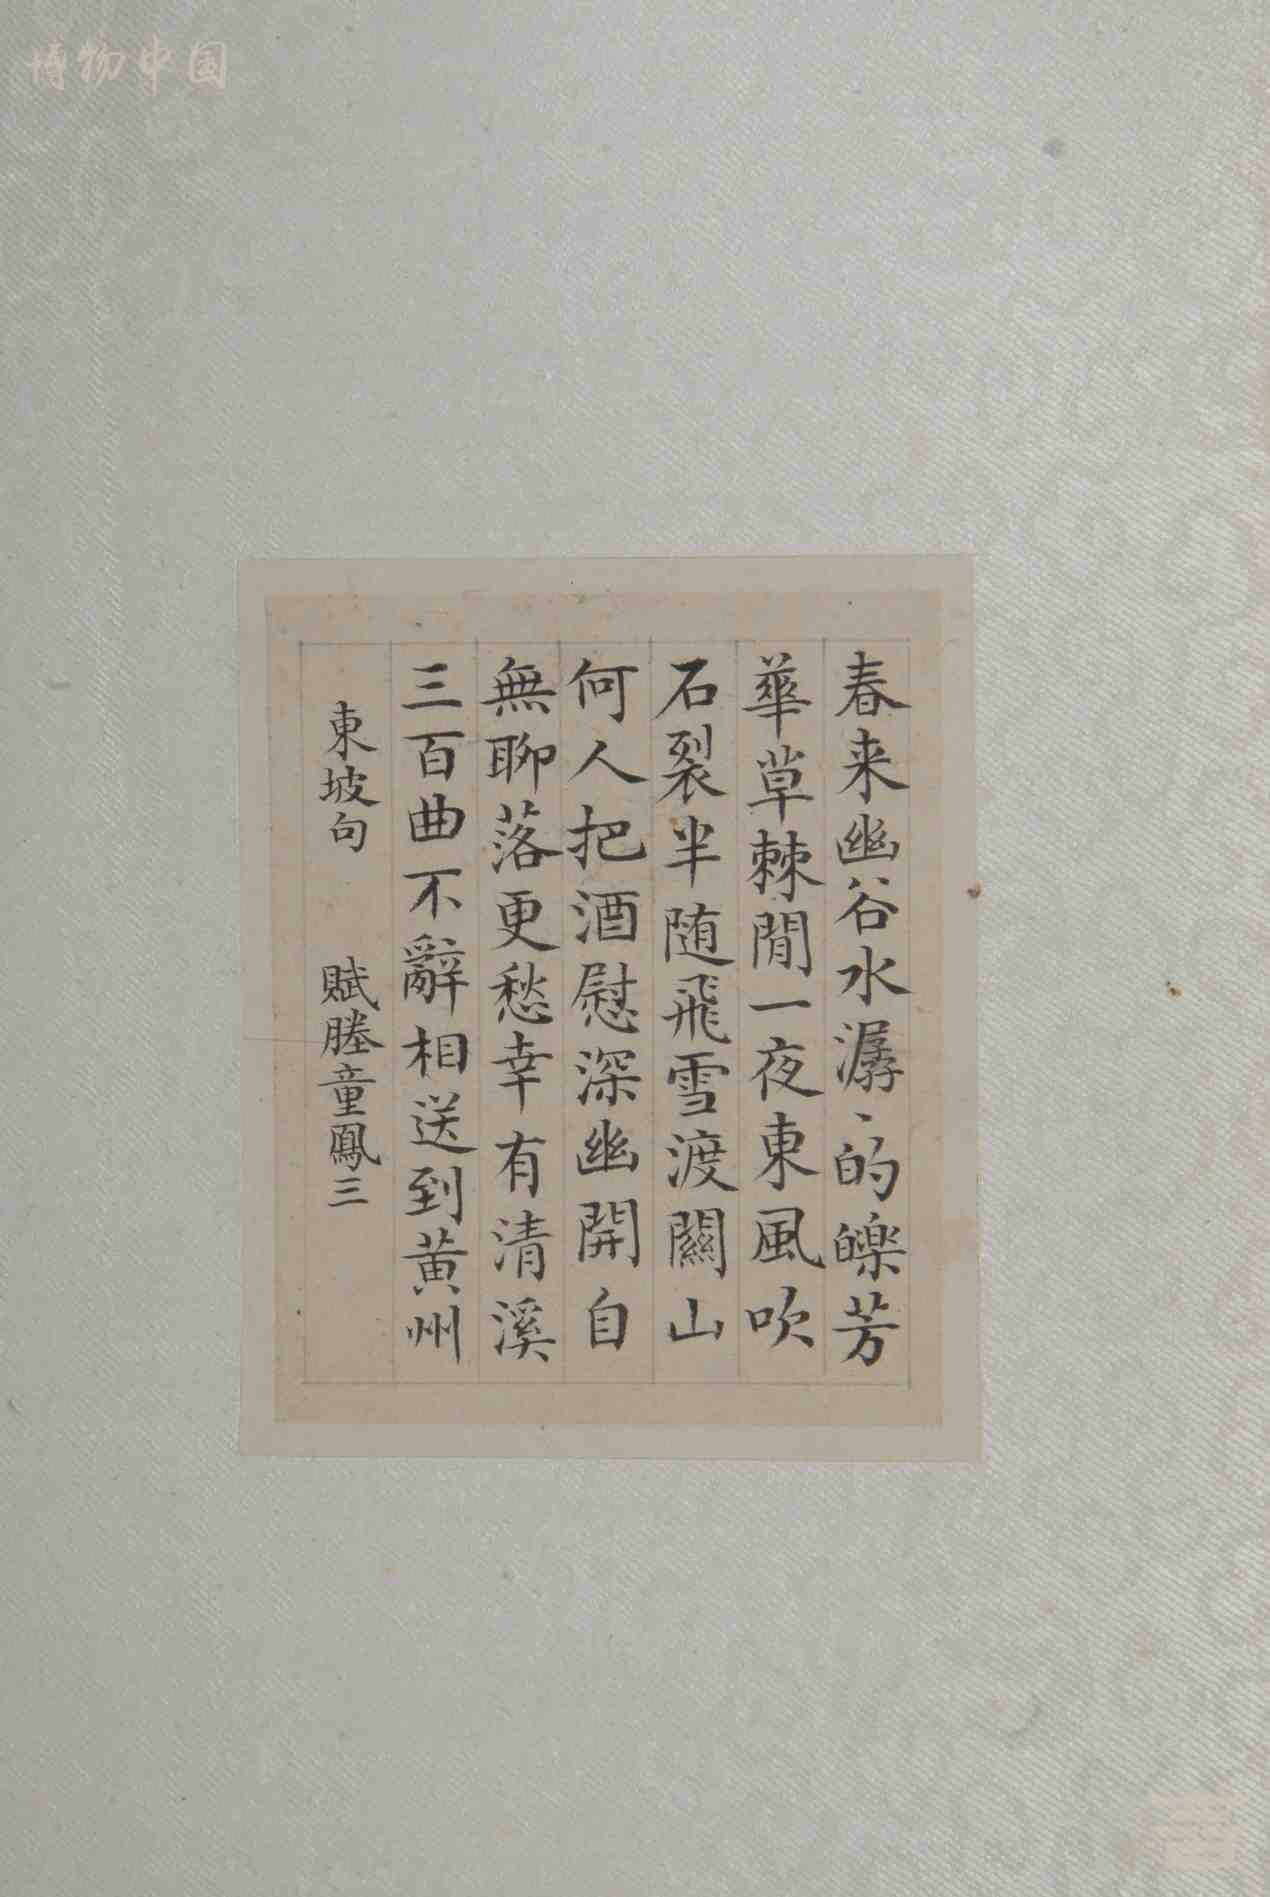 博物中国
春来幽谷水潺〻的皪芳
華草棘間一夜東風吹
石裂半随飛雪渡關山
何人把酒慰深幽開自
無聊落更愁幸有清溪
三百曲不辭相送到黄州
東坡句 賦塍童鳳三